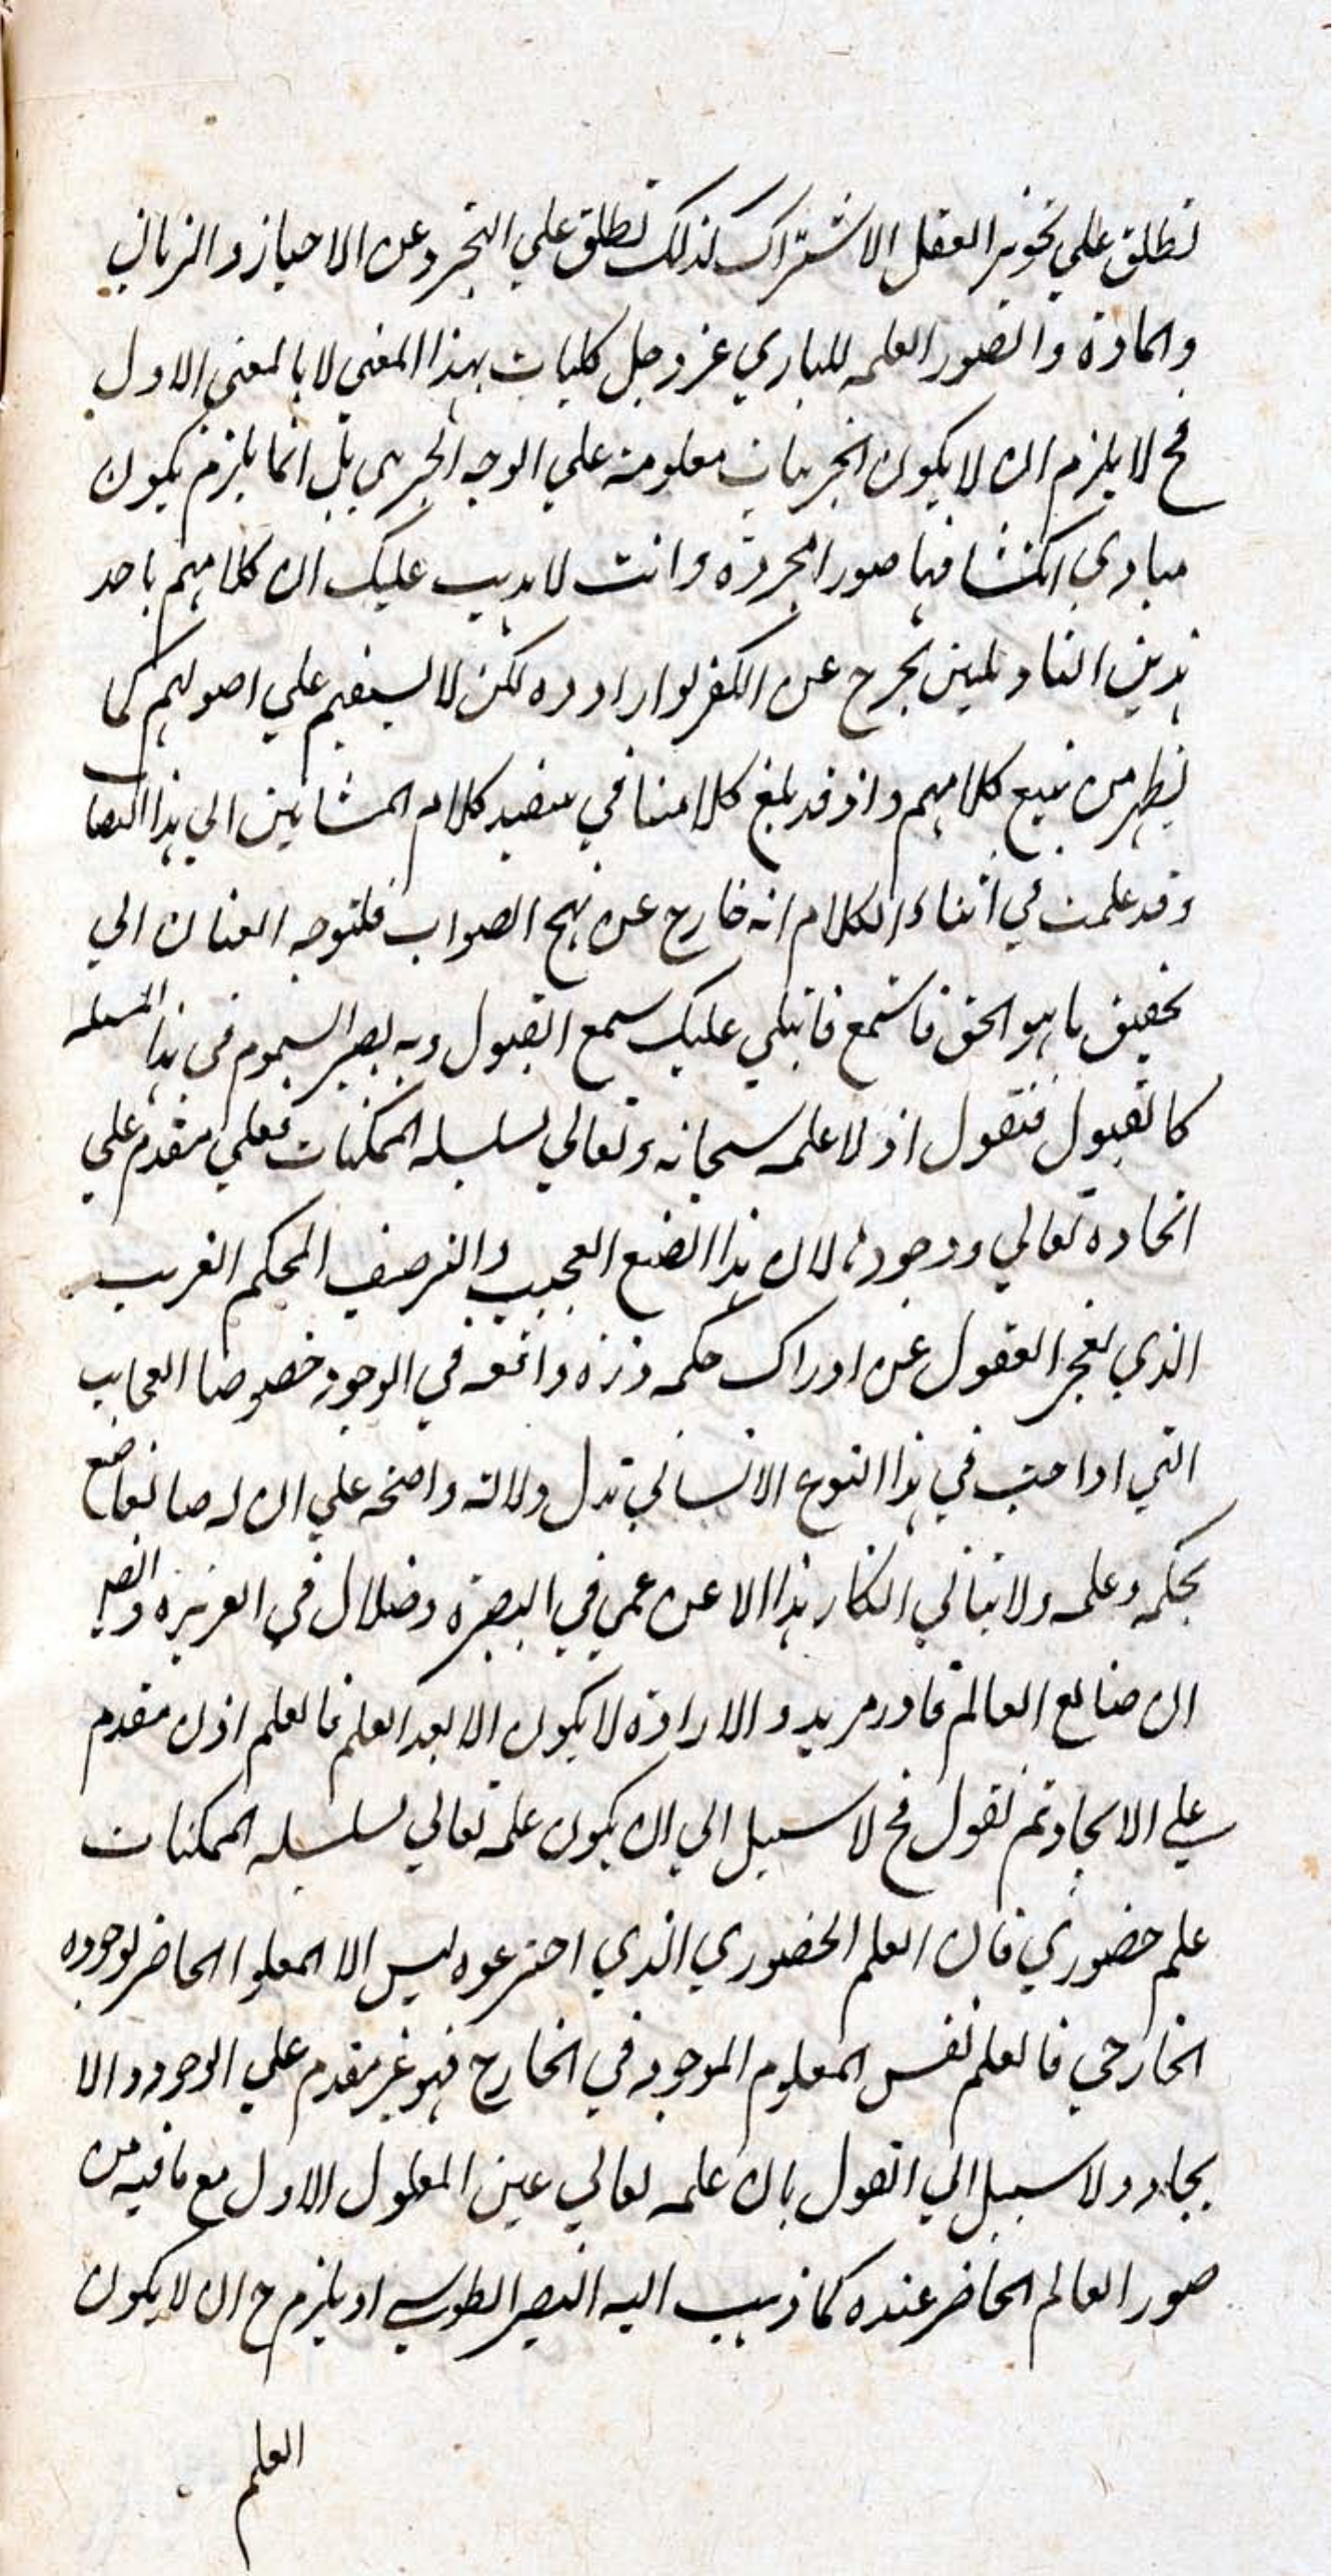 تطلق علي تجويز العقل الاشتراك كذلك تطلق علي التجرد عن الاحياز والزمان
والمادة والصور العلمه للباري عز وجل كليات بهذا المعني لا بالمعني الاول
فح لا يلزم ان لا يكون الجزييات معلومة علي الوجه الجزيي بل انما يلزم كون
مبادي انكشافها صورا مجردة وانت لا يذهب عليك ان كلامهم باحد
هذين التاويلين يخرج عن الكفر لو ارادوه لكن لا يستقيم علي اصولهم كما
يظهر من تتبع كلامهم واذ قد بلغ كلامنا في تنضيد كلام المشايين الي هذا النصاب
وقد علمت في اثناء الكلام انه خارج عن نهج الصواب فلنوجه العنان الي
تحقيق ما هو الحق فاستمع ما يتلي عليك سمع القبول وبه يصير السموم في هذا المسئله
كالقبول فنقول اولا علمه سبحانه وتعالي بسلسله الممكنات فعلي مقدم علي
اتحاده تعالي ووجوده لان هذا الصنع العجيب والترصيف المحكم الغريب
الذي يعجز العقول عن ادراك حكمه ذره واقعه في الوجود خصوصا العجايب
التي اودعت في هذا النوع الانساني تدل دلالة واضحة علي ان له صانعا صنع
بحكمه وعلمه ولا يتاتي انكار هذا الا عن عمي في البصيرة وضلال في الغريزه وايضا
ان صانع العالم قادر مريد والارادة لا يكون الا بعد العلم فالعلم اذن مقدم
علي الايجاد ثم نقول فح لا سبيل الي ان يكون علمه تعالي بسلسله الممكنات
علم حضوري فان العلم الحضوري الذي اخترعوه ليس الا المعلوم الحاضر لوجوده
الخارجي فالعلم نفس المعلوم الموجود في الخارج فهو غير مقدم علي الوجود والا
يجاد ولا سبيل الي القول بان علمه تعالي عين المعلول الاول مع ما فيه من
صور العالم الحاضر عنده كما ذهب اليه النصير الطوسي اذ يلزم ح ان لا يكون
العلم